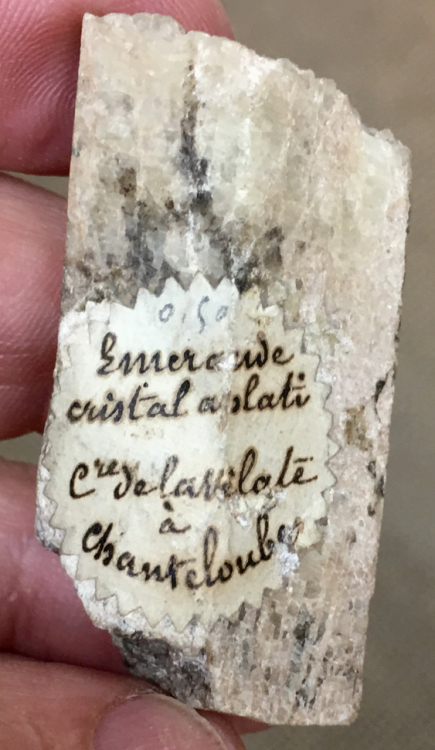 0.50
Emeraude
cristal aplati
Cre de la Vilate
à
Chanteloube